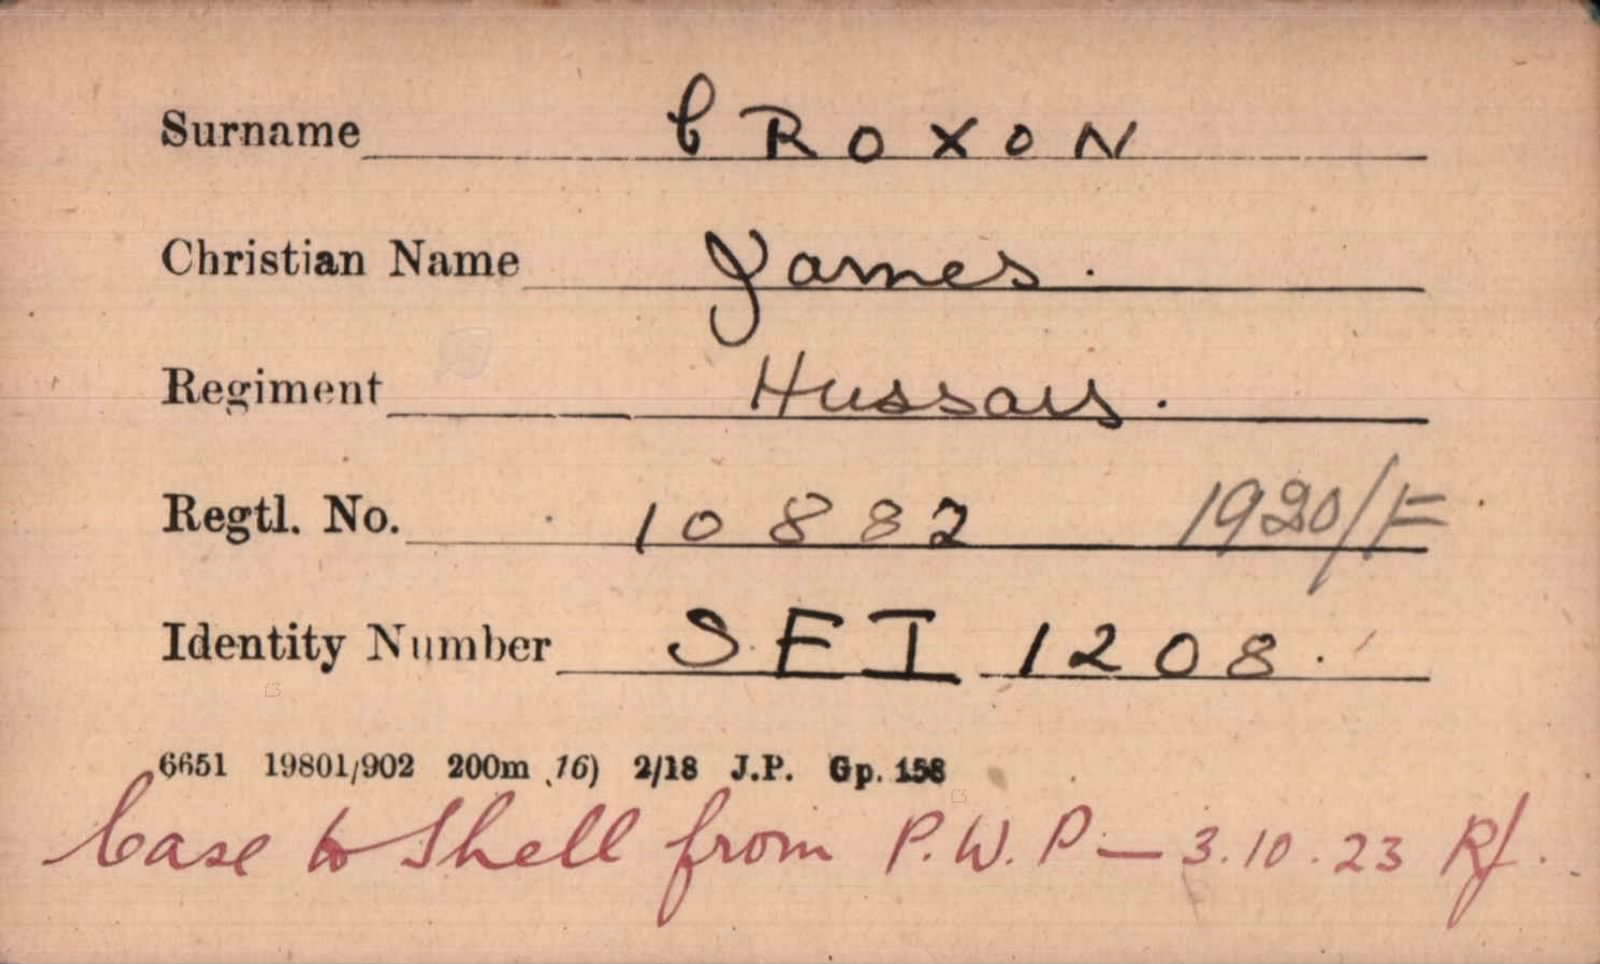 Surname CROXON
Christian Name James.
Regiment Hussars.
Regtl. No. 10882 1920/F
Identity Number SEI 1208.
6651 19801/902 200m (16) 2/18 J.P. Gp. 158
Case to Shell from P.W.P— 3.10.23 Rf.